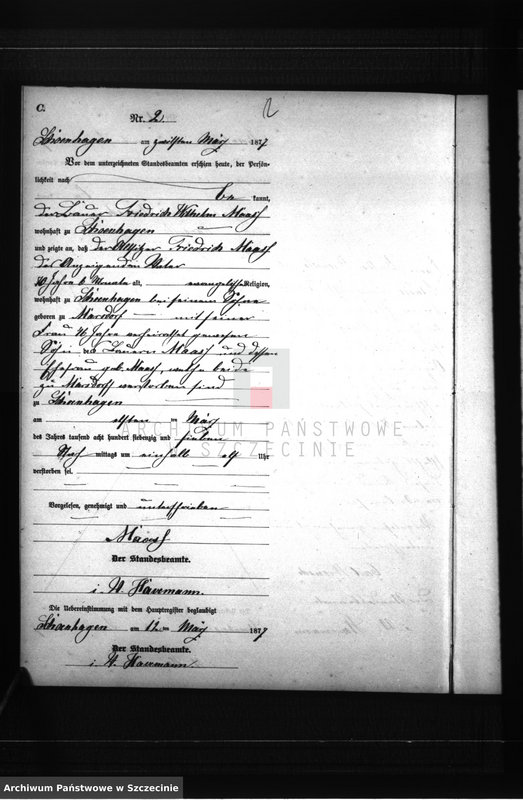 C.
Nr. 2.
2
Schoenhagen am zwölften März 1877
Vor dem unterzeichneten Standesbeamten erschien heute, der Persön-
lichkeit nach
be kannt,
der Bauer Friedrich Wilhelm Maass
wohnhaft zu Schoenhagen
und zeigte an, daß der Altsitzer Friedrich Maass
des Anzeigenden Vater
Jahre 6 Monate alt, evangelischer Religion,
wohnhaft zu Schoenhagen bei seinem Sohne
geboren zu Marsdorf mit seiner
Frau Jahre verheirathet gewesen
Sohn des Bauern Maass und dessen
Ehefrau geb. Maass, welche beide
zu Marsdorf verstorben sind
zu Schoenhagen
am elften ten März
des Jahres tausend acht hundert siebenzig und sieben
Nach mittags um einhalb elf Uhr
verstorben sei.
Vorgelesen, genehmigt und unterschrieben
Maass
Der Standesbeamte.
i. V. Havemann.
Die Uebereinstimmung mit dem Hauptregister beglaubigt
Schoenhagen am 12 ten März 1877
Der Standesbeamte.
i. V. Havemann.
ARCHIWUM PAŃSTWOWE
W SZCZECINIE
Archiwum Państwowe w Szczecinie